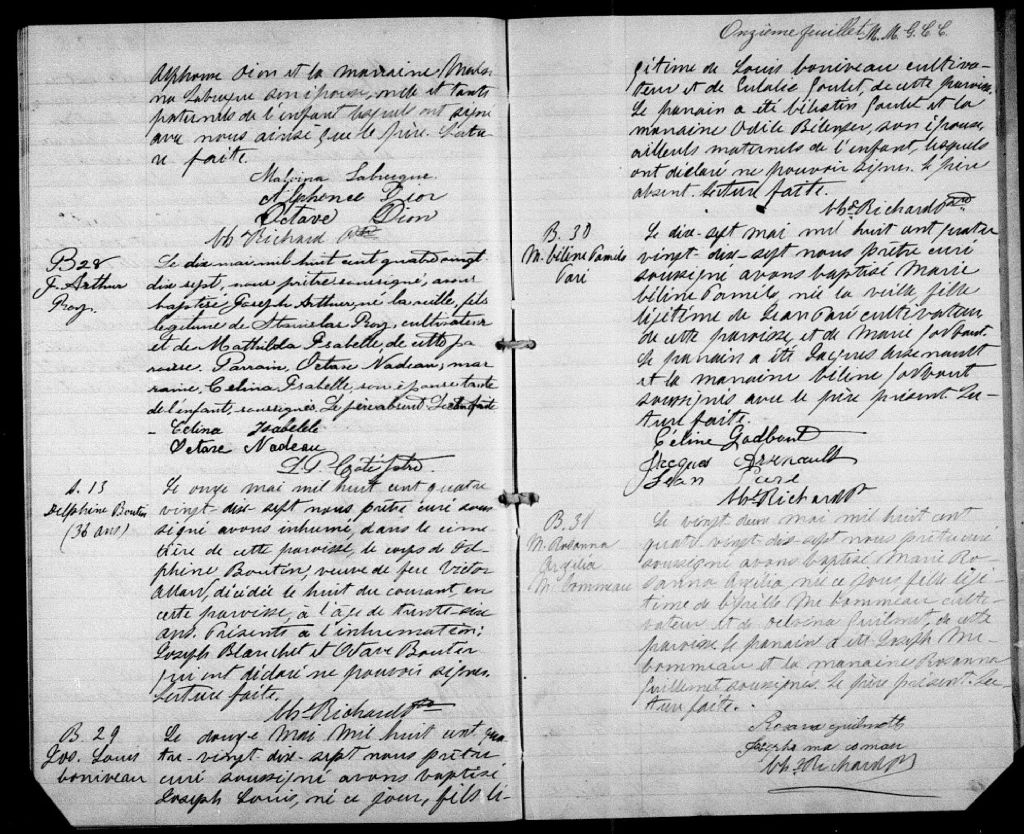 Alphonse Dion et la marraine Malvi-
na Labrecque son épouse, oncle et tante
paternels de l'enfant lesquels ont signé
avec nous ainsi que le père. Lectu-
re faite.
Malvina Labrecque.
Alphonse Dion
Octave Dion
Ch Richard Ptre
B 28
J. Arthur
Roy.
Le dix mai mil huit cent quatre vingt
dix sept, nous prêtre soussigné, avons
baptisé Joseph Arthur, né la veille, fils
légitime de Stanislas Roy, cultivateur
et de Mathilda Isabelle de cette pa
roisse. Parrain, Octave Nadeau, mar
raine, Célina Isabelle, son épouse tante
de l'enfant, soussignés. Le père absent. Lecture faite
- Célina Isabelle
Octave Nadeau
L. P. Côté ptre.
S. 13
Delphine Boutin
(36 ans)
Le onze mai mil huit cent quatre
vingt-dix-sept nous prêtre curé sous
signé avons inhumé, dans le cime
tière de cette paroisse, le corps de Del
phine Boutin, veuve de feu Victor
Allard, décédée le huit du courant, en
cette paroisse, à l'âge de trente-six
ans. Présents à l'inhumation:
Joseph Blanchet et Octave Boutin
qui ont déclaré ne pouvoir signer.
Lecture faite.
Ch. Richard Ptre
B. 29
Jos. Louis
Coniveau
Le douze mai mil huit cent qua
tre-vingt-dix-sept nous prêtre
curé soussigné avons baptisé
Joseph Louis, né ce jour, fils lé-
Onzième feuillet M. M. G. C. C.
gitime de Louis Coniveau cultiva-
teur et de Eulalie Goulet, de cette paroisse
Le parrain a été Célestin Goulet et la
marraine Odile Bélanger, son épouse,
aïeuls maternels de l'enfant, lesquels
ont déclaré ne pouvoir signer. Le père
absent. Lecture faite.
Ch. Richard Ptre
B. 30
M. Céline Pamila
Paré
Le dix-sept mai mil huit cent quatre
vingt-dix-sept nous prêtre curé
soussigné avons baptisé Marie
Céline Pamila, née la veille fille
légitime de Jean Paré cultivateur
de cette paroisse, et de Marie Godbout.
Le parrain a été Jacques Arsenault
et la marraine Céline Godbout
soussignés avec le père présent. Lec-
ture faite.
Céline Godbout
Jacques Arsenault
Jean Paré
Ch. Richard Ptre
B. 31
M. Rosanna
Arzélia
Mc Commeau
Le vingt deux mai mil huit cent
quatre-vingt-dix-sept nous prêtre curé
soussigné avons baptisé Marie Ro
sanna Arzélia née ce jour fille légi-
time de Mc Commeau culti-
vateur et de Delvina Guilmet, de cette
paroisse. Le parrain a été Joseph Mc
Commeau et la marraine Rosanna
Guillemet soussignés. Le père présent. Lec-
ture faite.
Ch. Richard Ptre